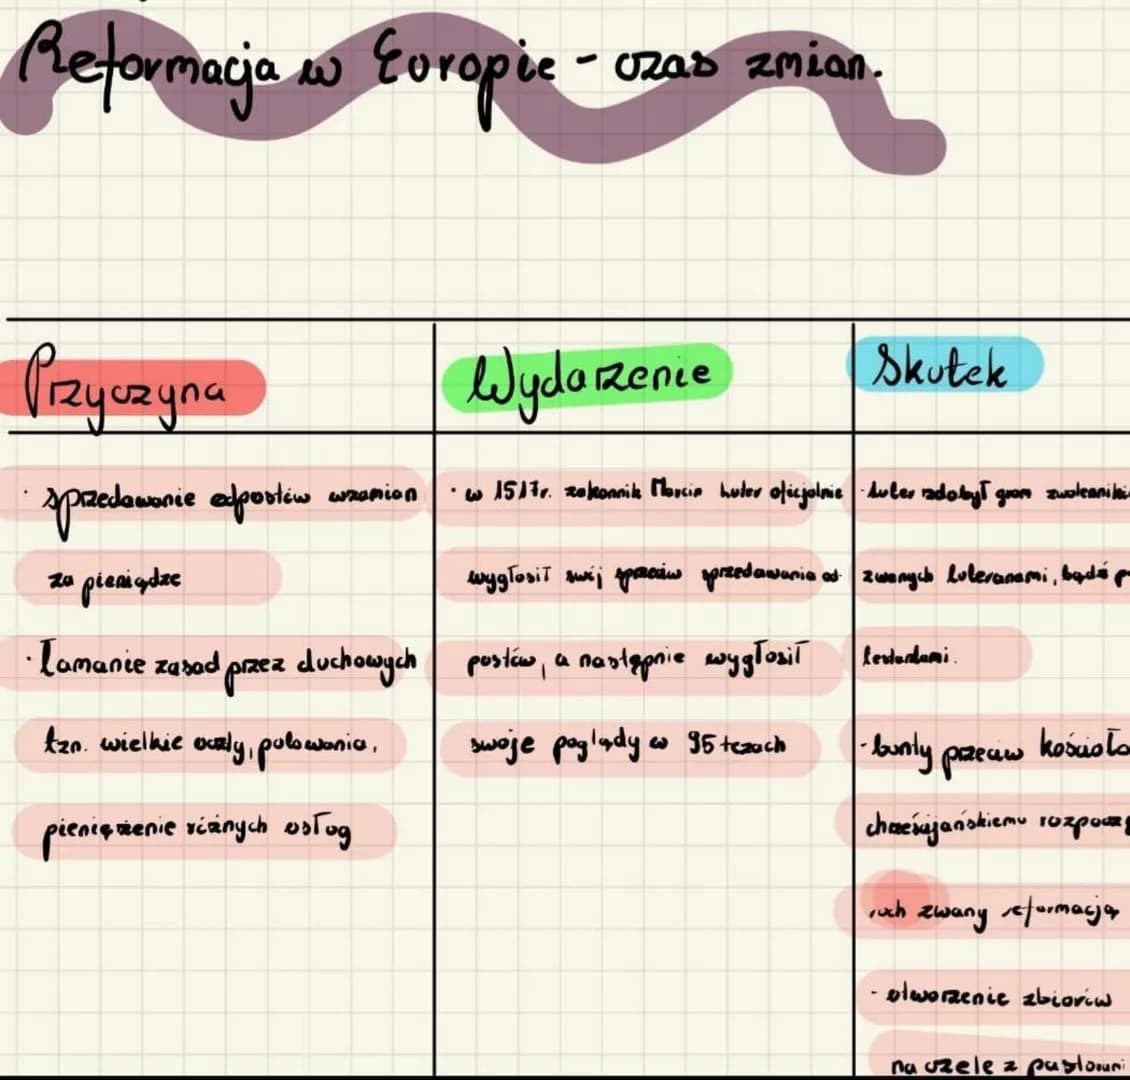 Reformacja w Europie - czas zmian.
Przyczyna
Wydarzenie
Skutek
· sprzedawanie odpustów wzamian
za pieniądze
· Łamanie zasad przez duchowych
tzn. wielkie uczty, polowania,
pieniężenie różnych usług
· w 1517r. zakonnik Marcin Luter oficjalnie
wygłosił swój sprzeciw sprzedawania od-
pustów, a następnie wygłosił
swoje poglądy w 95 tezach
- Luter zdobył gron zwolenników
zwanych luteranami, bądź p
testantami.
- bunty przeciw kościoło
chrześcijańskiemu rozpoczę
ruch zwany reformacją
- otworzenie zborów
na czele z pastorami